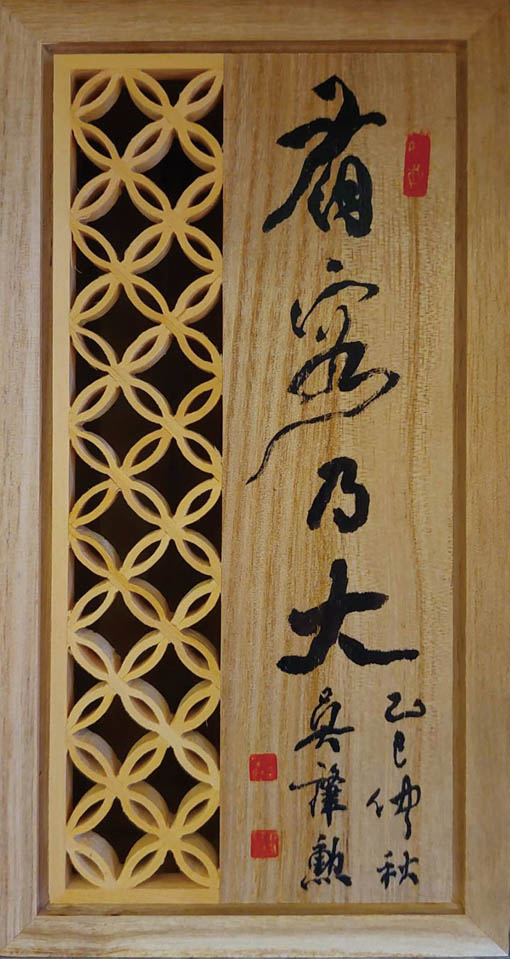 有容乃大
乙巳仲秋
吳肇勲